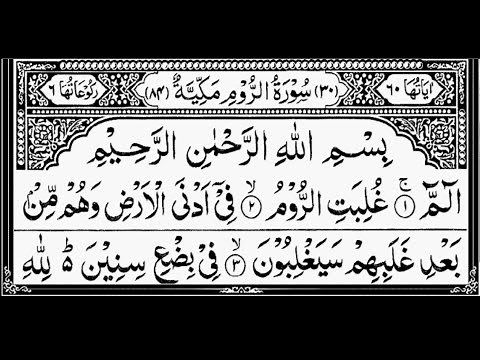 اٰيَاتُهَا ٦٠ (٣٠) سُوْرَةُ الرُّوْمِ مَكِّيَّةٌ (٨٤) رُكُوْعَاتُهَا ٦
بِسْمِ اللّٰهِ الرَّحْمٰنِ الرَّحِيْمِ
الٓمّٓ ۚ‏﴿١﴾ غُلِبَتِ الرُّوْمُ ۙ‏﴿٢﴾ فِىْۤ اَدْنَى الْاَرْضِ وَهُمْ مِّنْۢ
بَعْدِ غَلَبِهِمْ سَيَغْلِبُوْنَ ۙ‏﴿٣﴾ فِىْ بِضْعِ سِنِيْنَ ؕ لِلّٰهِ